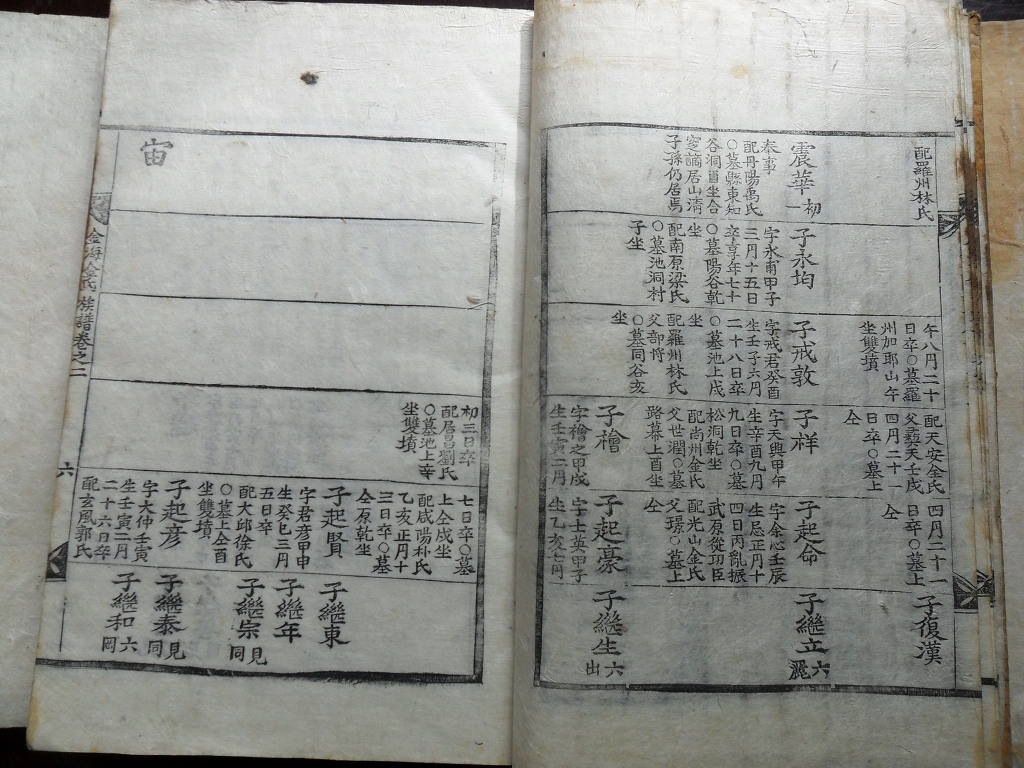 配羅州林氏
震華 初一
奉事
配丹陽禹氏
○墓縣東知
谷洞酉坐合
窆謫居山淸
子孫仍居焉
子永均
字永甫甲子
三月十五日
卒享年七十
○墓陽谷乾
坐
配南原梁氏
○墓池洞村
子坐
午八月二十
日卒○墓羅
州加耶山午
坐雙墳
子戒敦
字戒君癸酉
生壬子六月
二十八日卒
○墓池上戌
坐
配羅州林氏
父部將
○墓同谷亥
坐
配天安全氏
父藝天壬戌
四月二十一
日卒○墓上
仝
子样
字天與甲午
生辛酉九月
九日卒○墓
松洞乾坐
配尙州金氏
父世潤○墓
路幕上酉坐
子檜
字檜之甲戌
生壬寅二月
四月二十一
日卒○墓上
仝
子起命
字余心壬辰
生忌正月十
四日丙亂振
武原從功臣
配光山金氏
父璟○墓上
仝
子起豪
字士英甲子
生乙亥七月
子復漢
子繼立 六麗
子繼生 六出
初三日卒
配居昌劉氏
○墓池上辛
坐雙墳
七日卒○墓
上仝戌坐
配咸陽朴氏
乙亥正月十
三日卒○墓
仝原乾坐
子起賢
字君彥甲申
生癸巳三月
五日卒
配大邱徐氏
○墓上仝酉
坐雙墳
子起彥
字大仲壬寅
生壬寅二月
二十六日卒
配玄風郭氏
子繼東
子繼年
子繼宗 見同
子繼泰 見同
子繼和 六岡
宙
金海金氏族譜卷之二
六